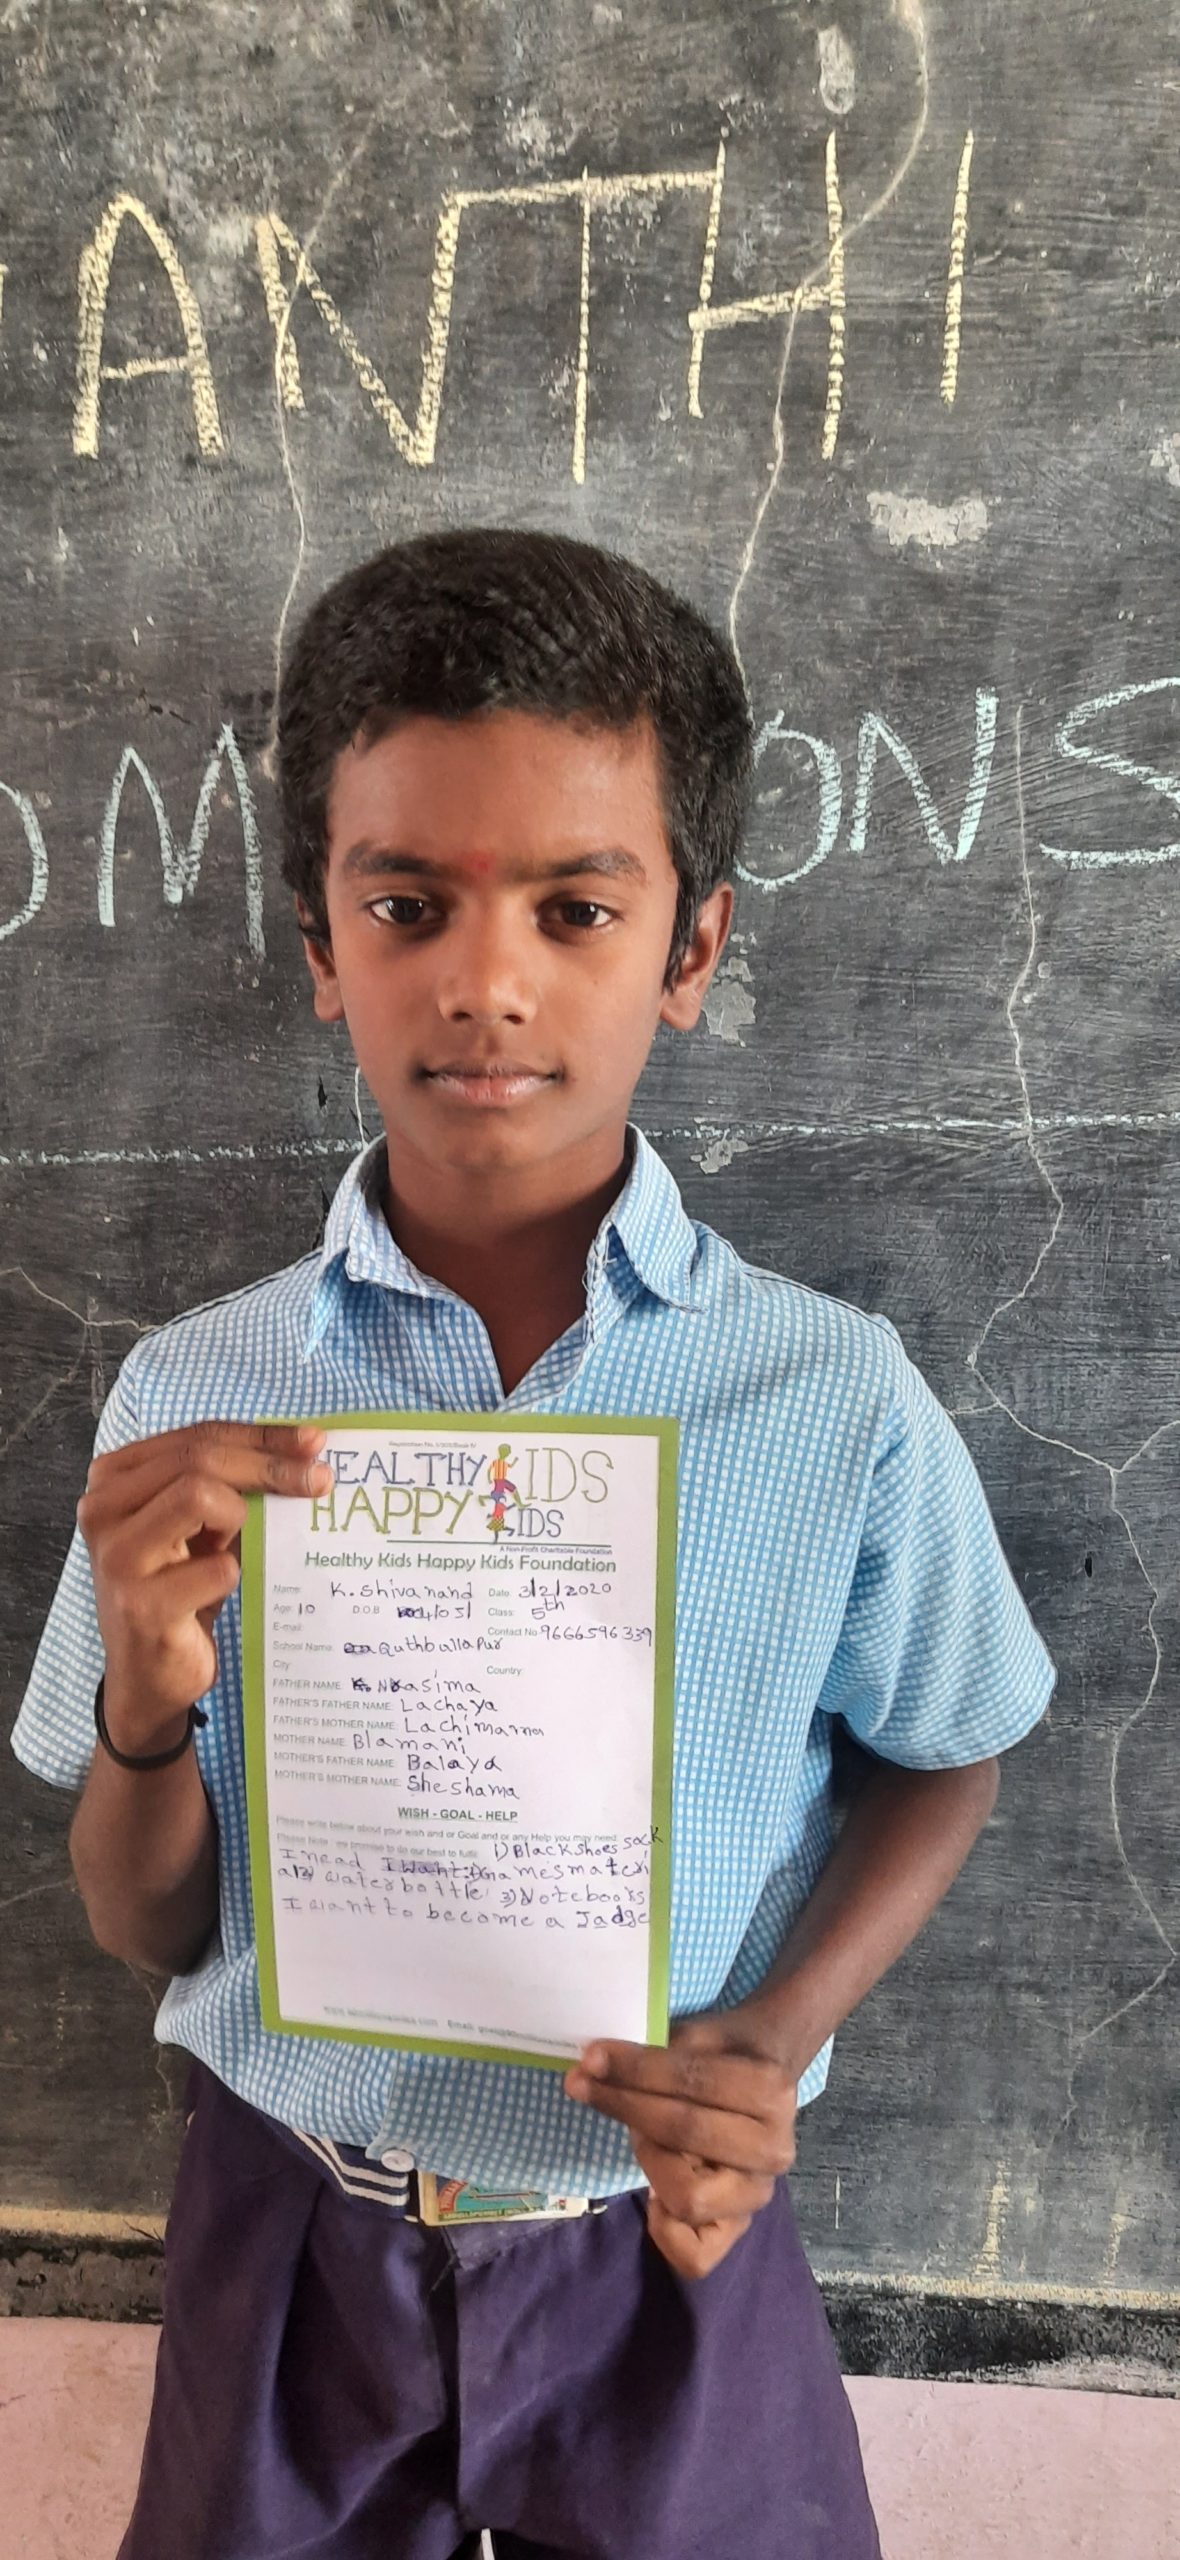 ANTHI
OM ONS
HEALTHY KIDS
HAPPY KIDS
A Non-Profit Charitable Foundation
Healthy Kids Happy Kids Foundation
Name: K. Shivanand Date: 3/2/2020
Age: 10 D.O.B 4/05/ Class: 5th
E-mail: Contact No. 9666596339
School Name: Quthbullapur
City: Country:
FATHER NAME: Nasima
FATHER'S FATHER NAME: Lachaya
FATHER'S MOTHER NAME: Lachimamma
MOTHER NAME: Blamani
MOTHER'S FATHER NAME: Balaya
MOTHER'S MOTHER NAME: Sheshama
WISH - GOAL - HELP
Please write below about your wish and or Goal and or any Help you may need.
Please Note: we promise to do our best to fulfil. 1) Black shoes sock
I nead I want: games materi
al 2) water bottle 3) Notebooks
I want to become a Jadge